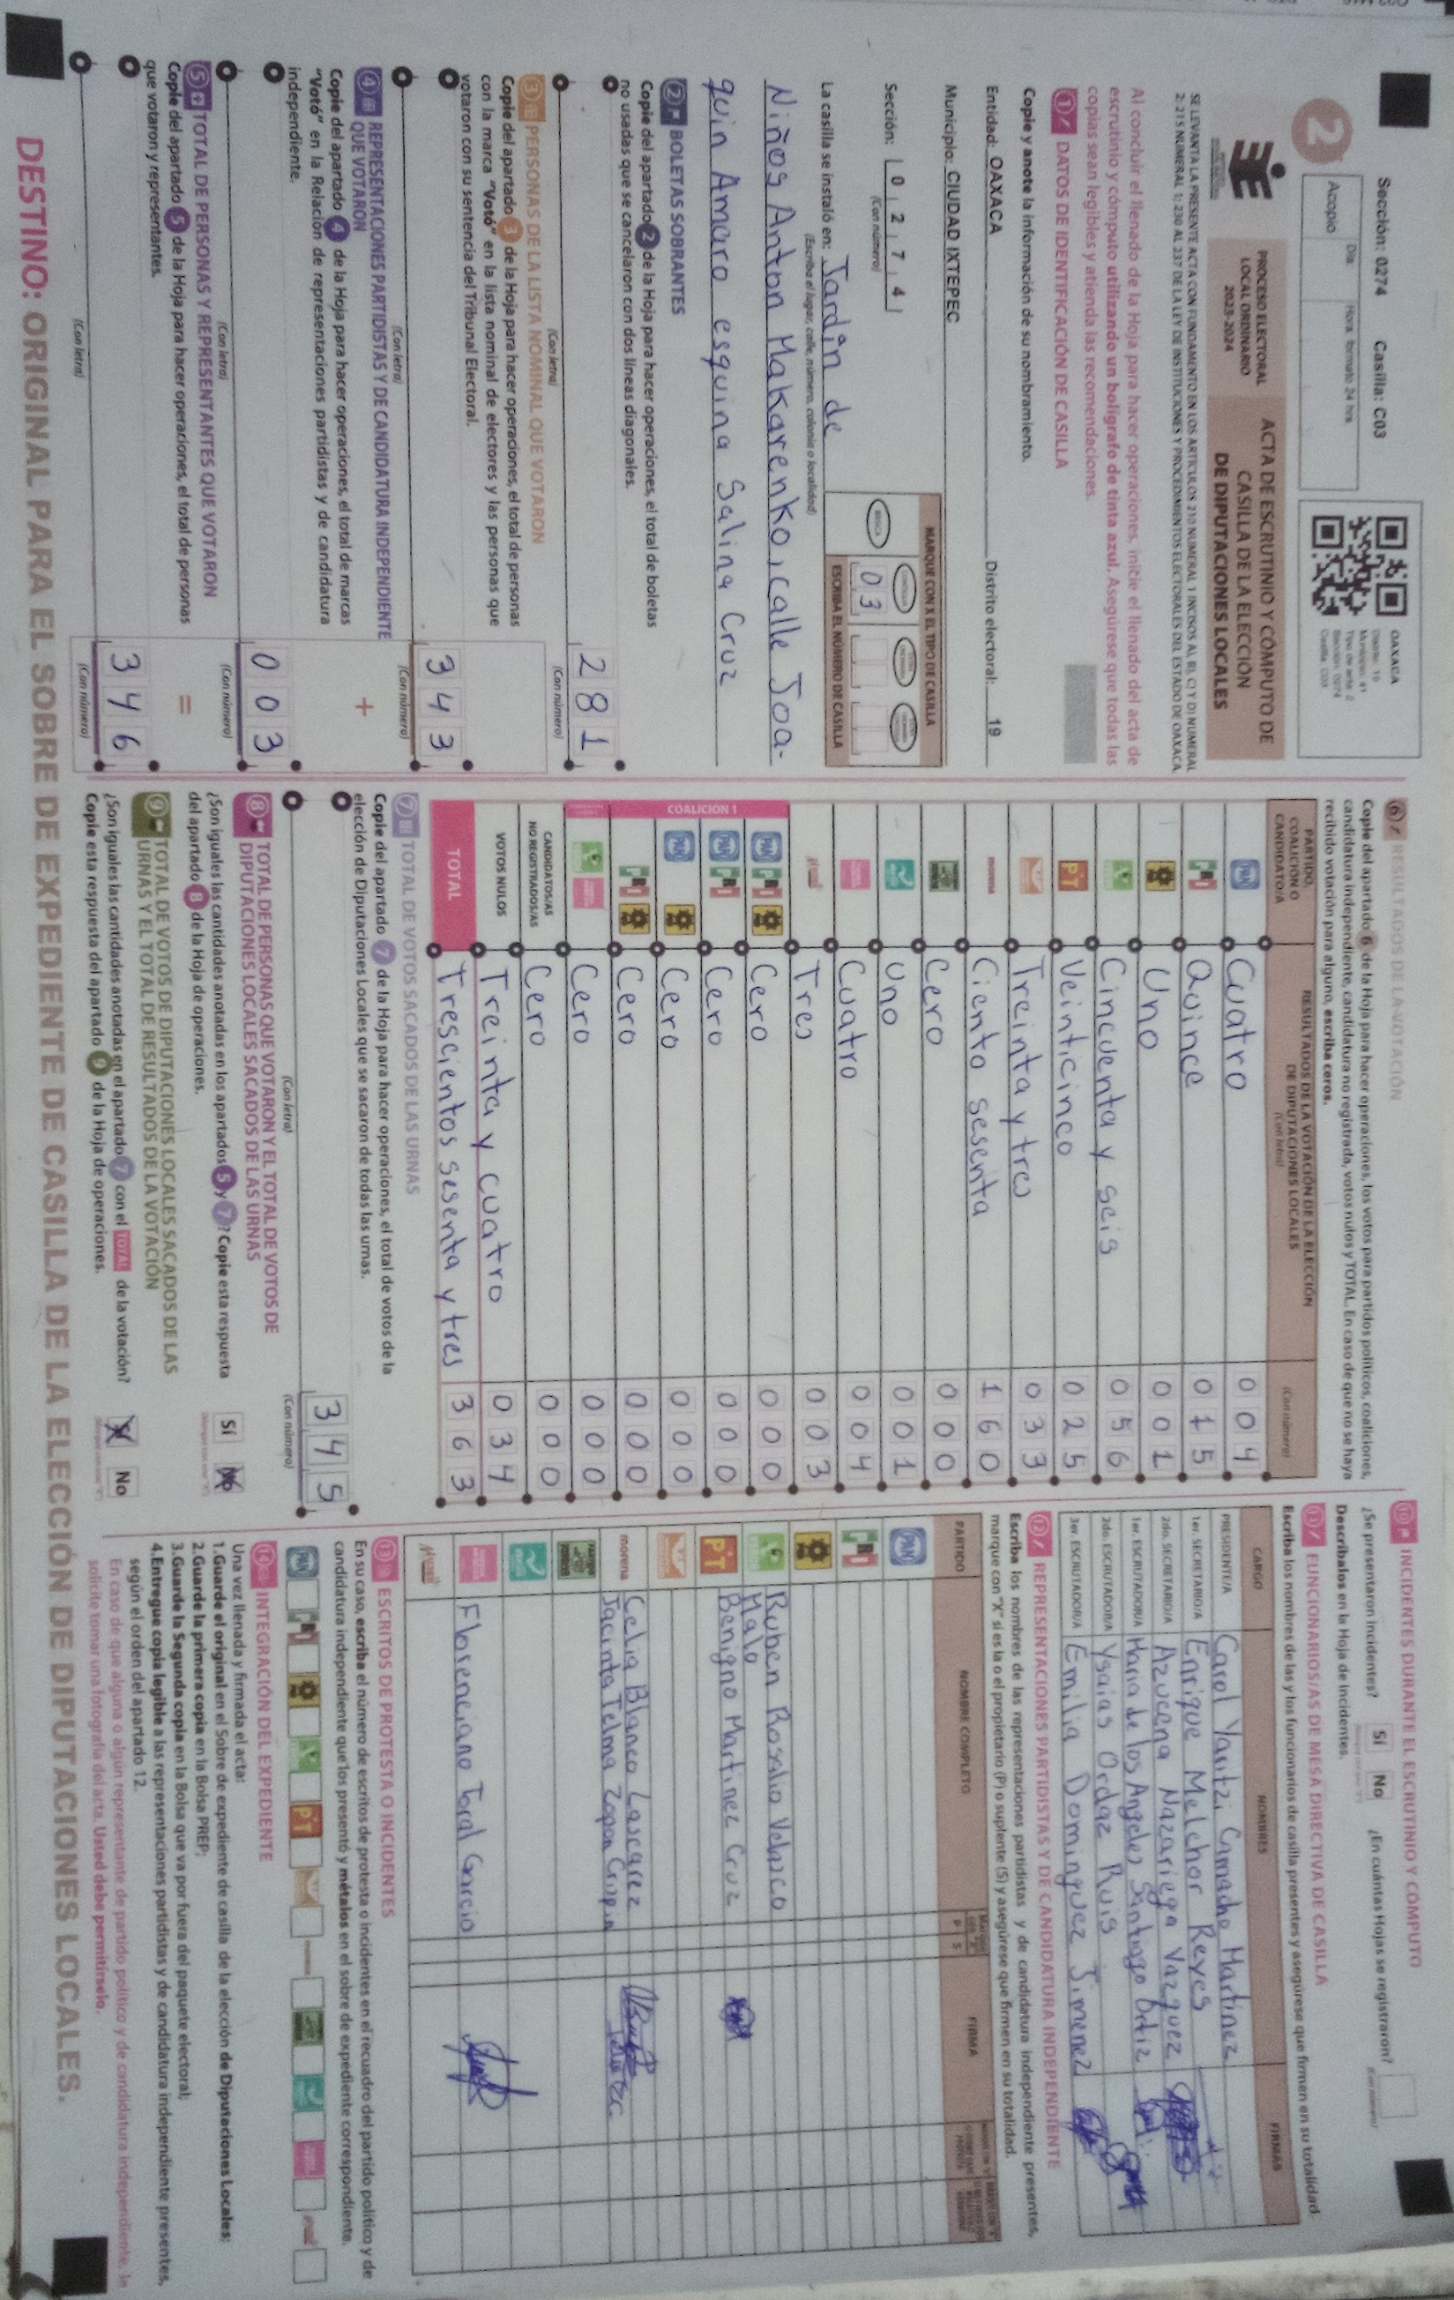 Sección: 0274 Casilla: C03
2
Día Hora formato 24 hrs
Acopio
OAXACA
PROCESO ELECTORAL
LOCAL ORDINARIO
2023-2024
ACTA DE ESCRUTINIO Y CÓMPUTO DE
CASILLA DE LA ELECCIÓN
DE DIPUTACIONES LOCALES
SE LEVANTA LA PRESENTE ACTA CON FUNDAMENTO EN LOS ARTÍCULOS 210 NUMERAL 1 INCISOS A), B), C) Y D) NUMERAL
2; 215 NUMERAL 1; 230 AL 237 DE LA LEY DE INSTITUCIONES Y PROCEDIMIENTOS ELECTORALES DEL ESTADO DE OAXACA.
Al concluir el llenado de la Hoja para hacer operaciones, inicie el llenado del acta de
escrutinio y cómputo utilizando un bolígrafo de tinta azul. Asegúrese que todas las
copias sean legibles y atienda las recomendaciones.
1 DATOS DE IDENTIFICACIÓN DE CASILLA
Copie y anote la información de su nombramiento.
Entidad: OAXACA Distrito electoral: 19
Municipio: CIUDAD IXTEPEC
Sección: 0 2 7 4
(Con número)
MARQUE CON X EL TIPO DE CASILLA
0 3
ESCRIBA EL NÚMERO DE CASILLA
La casilla se instaló en: Jardín de
(Escriba el lugar, calle, número, colonia o localidad)
Niños Anton Makarenko, calle Joa-
quin Amaro esquina Salina Cruz
2 BOLETAS SOBRANTES
Copie del apartado 2 de la Hoja para hacer operaciones, el total de boletas
no usadas que se cancelaron con dos líneas diagonales.
2 8 1
(Con letra) (Con número)
3 PERSONAS DE LA LISTA NOMINAL QUE VOTARON
Copie del apartado 3 de la Hoja para hacer operaciones, el total de personas
con la marca "Votó" en la lista nominal de electores y las personas que
votaron con su sentencia del Tribunal Electoral.
3 4 3
(Con letra) (Con número)
4 REPRESENTACIONES PARTIDISTAS Y DE CANDIDATURA INDEPENDIENTE
QUE VOTARON
+
Copie del apartado 4 de la Hoja para hacer operaciones, el total de marcas
"Votó" en la Relación de representaciones partidistas y de candidatura
independiente.
0 0 3
(Con letra) (Con número)
5 TOTAL DE PERSONAS Y REPRESENTANTES QUE VOTARON
=
Copie del apartado 5 de la Hoja para hacer operaciones, el total de personas
que votaron y representantes.
3 4 6
(Con letra) (Con número)
6 RESULTADOS DE LA VOTACIÓN
Copie del apartado 6 de la Hoja para hacer operaciones, los votos para partidos políticos, coaliciones,
candidatura independiente, candidatura no registrada, votos nulos y TOTAL. En caso de que no se haya
recibido votación para alguno, escriba ceros.
PARTIDO,
COALICIÓN O
CANDIDATO/A
RESULTADOS DE LA VOTACIÓN DE LA ELECCIÓN
DE DIPUTACIONES LOCALES
(Con letra) (Con número)
PAN Cuatro 0 0 4
PRI Quince 0 1 5
Uno 0 0 1
Cincuenta y seis 0 5 6
PT Veinticinco 0 2 5
Treinta y tres 0 3 3
morena Ciento sesenta 1 6 0
Cero 0 0 0
Uno 0 0 1
Cuatro 0 0 4
Tres 0 0 3
COALICIÓN 1
PAN PRI Cero 0 0 0
PAN PRI Cero 0 0 0
PAN Cero 0 0 0
PRI Cero 0 0 0
Cero 0 0 0
CANDIDATOS/AS
NO REGISTRADOS/AS Cero 0 0 0
VOTOS NULOS Treinta y cuatro 0 3 4
TOTAL Trescientos sesenta y tres 3 6 3
7 TOTAL DE VOTOS SACADOS DE LAS URNAS
Copie del apartado 7 de la Hoja para hacer operaciones, el total de votos de la
elección de Diputaciones Locales que se sacaron de todas las urnas.
3 4 5
(Con letra) (Con número)
8 TOTAL DE PERSONAS QUE VOTARON Y EL TOTAL DE VOTOS DE
DIPUTACIONES LOCALES SACADOS DE LAS URNAS
¿Son iguales las cantidades anotadas en los apartados 5 y 7? Copie esta respuesta
del apartado 8 de la Hoja de operaciones.
Sí No
9 TOTAL DE VOTOS DE DIPUTACIONES LOCALES SACADOS DE LAS
URNAS Y EL TOTAL DE RESULTADOS DE LA VOTACIÓN
¿Son iguales las cantidades anotadas en el apartado 7 con el TOTAL de la votación?
Copie esta respuesta del apartado 9 de la Hoja de operaciones.
No
10 INCIDENTES DURANTE EL ESCRUTINIO Y CÓMPUTO
¿Se presentaron incidentes? Sí No ¿En cuántas Hojas se registraron?
Descríbalos en la Hoja de incidentes.
11 FUNCIONARIOS/AS DE MESA DIRECTIVA DE CASILLA
Escriba los nombres de las y los funcionarios de casilla presentes y asegúrese que firmen en su totalidad
CARGO NOMBRES FIRMAS
PRESIDENTE/A Carol Yaritzi Camacho Martinez
1er. SECRETARIO/A Enrique Melchor Reyes
2do. SECRETARIO/A Azucena Nazariega Vazquez
1er. ESCRUTADOR/A Maria de los Angeles Santiago Ortiz
2do. ESCRUTADOR/A Ysaias Ordaz Ruis
3er. ESCRUTADOR/A Emilia Dominguez Jimenez
12 REPRESENTACIONES PARTIDISTAS Y DE CANDIDATURA INDEPENDIENTE
Escriba los nombres de las representaciones partidistas y de candidatura independiente presentes,
marque con "X" si es la o el propietario (P) o suplente (S) y asegúrese que firmen en su totalidad.
PARTIDO NOMBRE COMPLETO P S FIRMA
PAN
PRI
Ruben Rosalio Velazco
Malo
PT Benigno Martinez Cruz
morena Celia Blanco Lascarez
Jacinta Telma Zopon Crispin
Florenciano Toral Garcia
13 ESCRITOS DE PROTESTA O INCIDENTES
En su caso, escriba el número de escritos de protesta o incidentes en el recuadro del partido político y de
candidatura independiente que los presentó y métalos en el sobre de expediente correspondiente.
PAN PRI PT
14 INTEGRACIÓN DEL EXPEDIENTE
Una vez llenada y firmada el acta:
1.Guarde el original en el Sobre de expediente de casilla de la elección de Diputaciones Locales;
2.Guarde la primera copia en la Bolsa PREP;
3.Guarde la Segunda copia en la Bolsa que va por fuera del paquete electoral;
4.Entregue copia legible a las representaciones partidistas y de candidatura independiente presentes,
según el orden del apartado 12.
En caso de que alguna o algún representante de partido político y de candidatura independiente, le
solicite tomar una fotografía del acta, Usted debe permitírselo.
DESTINO: ORIGINAL PARA EL SOBRE DE EXPEDIENTE DE CASILLA DE LA ELECCIÓN DE DIPUTACIONES LOCALES.